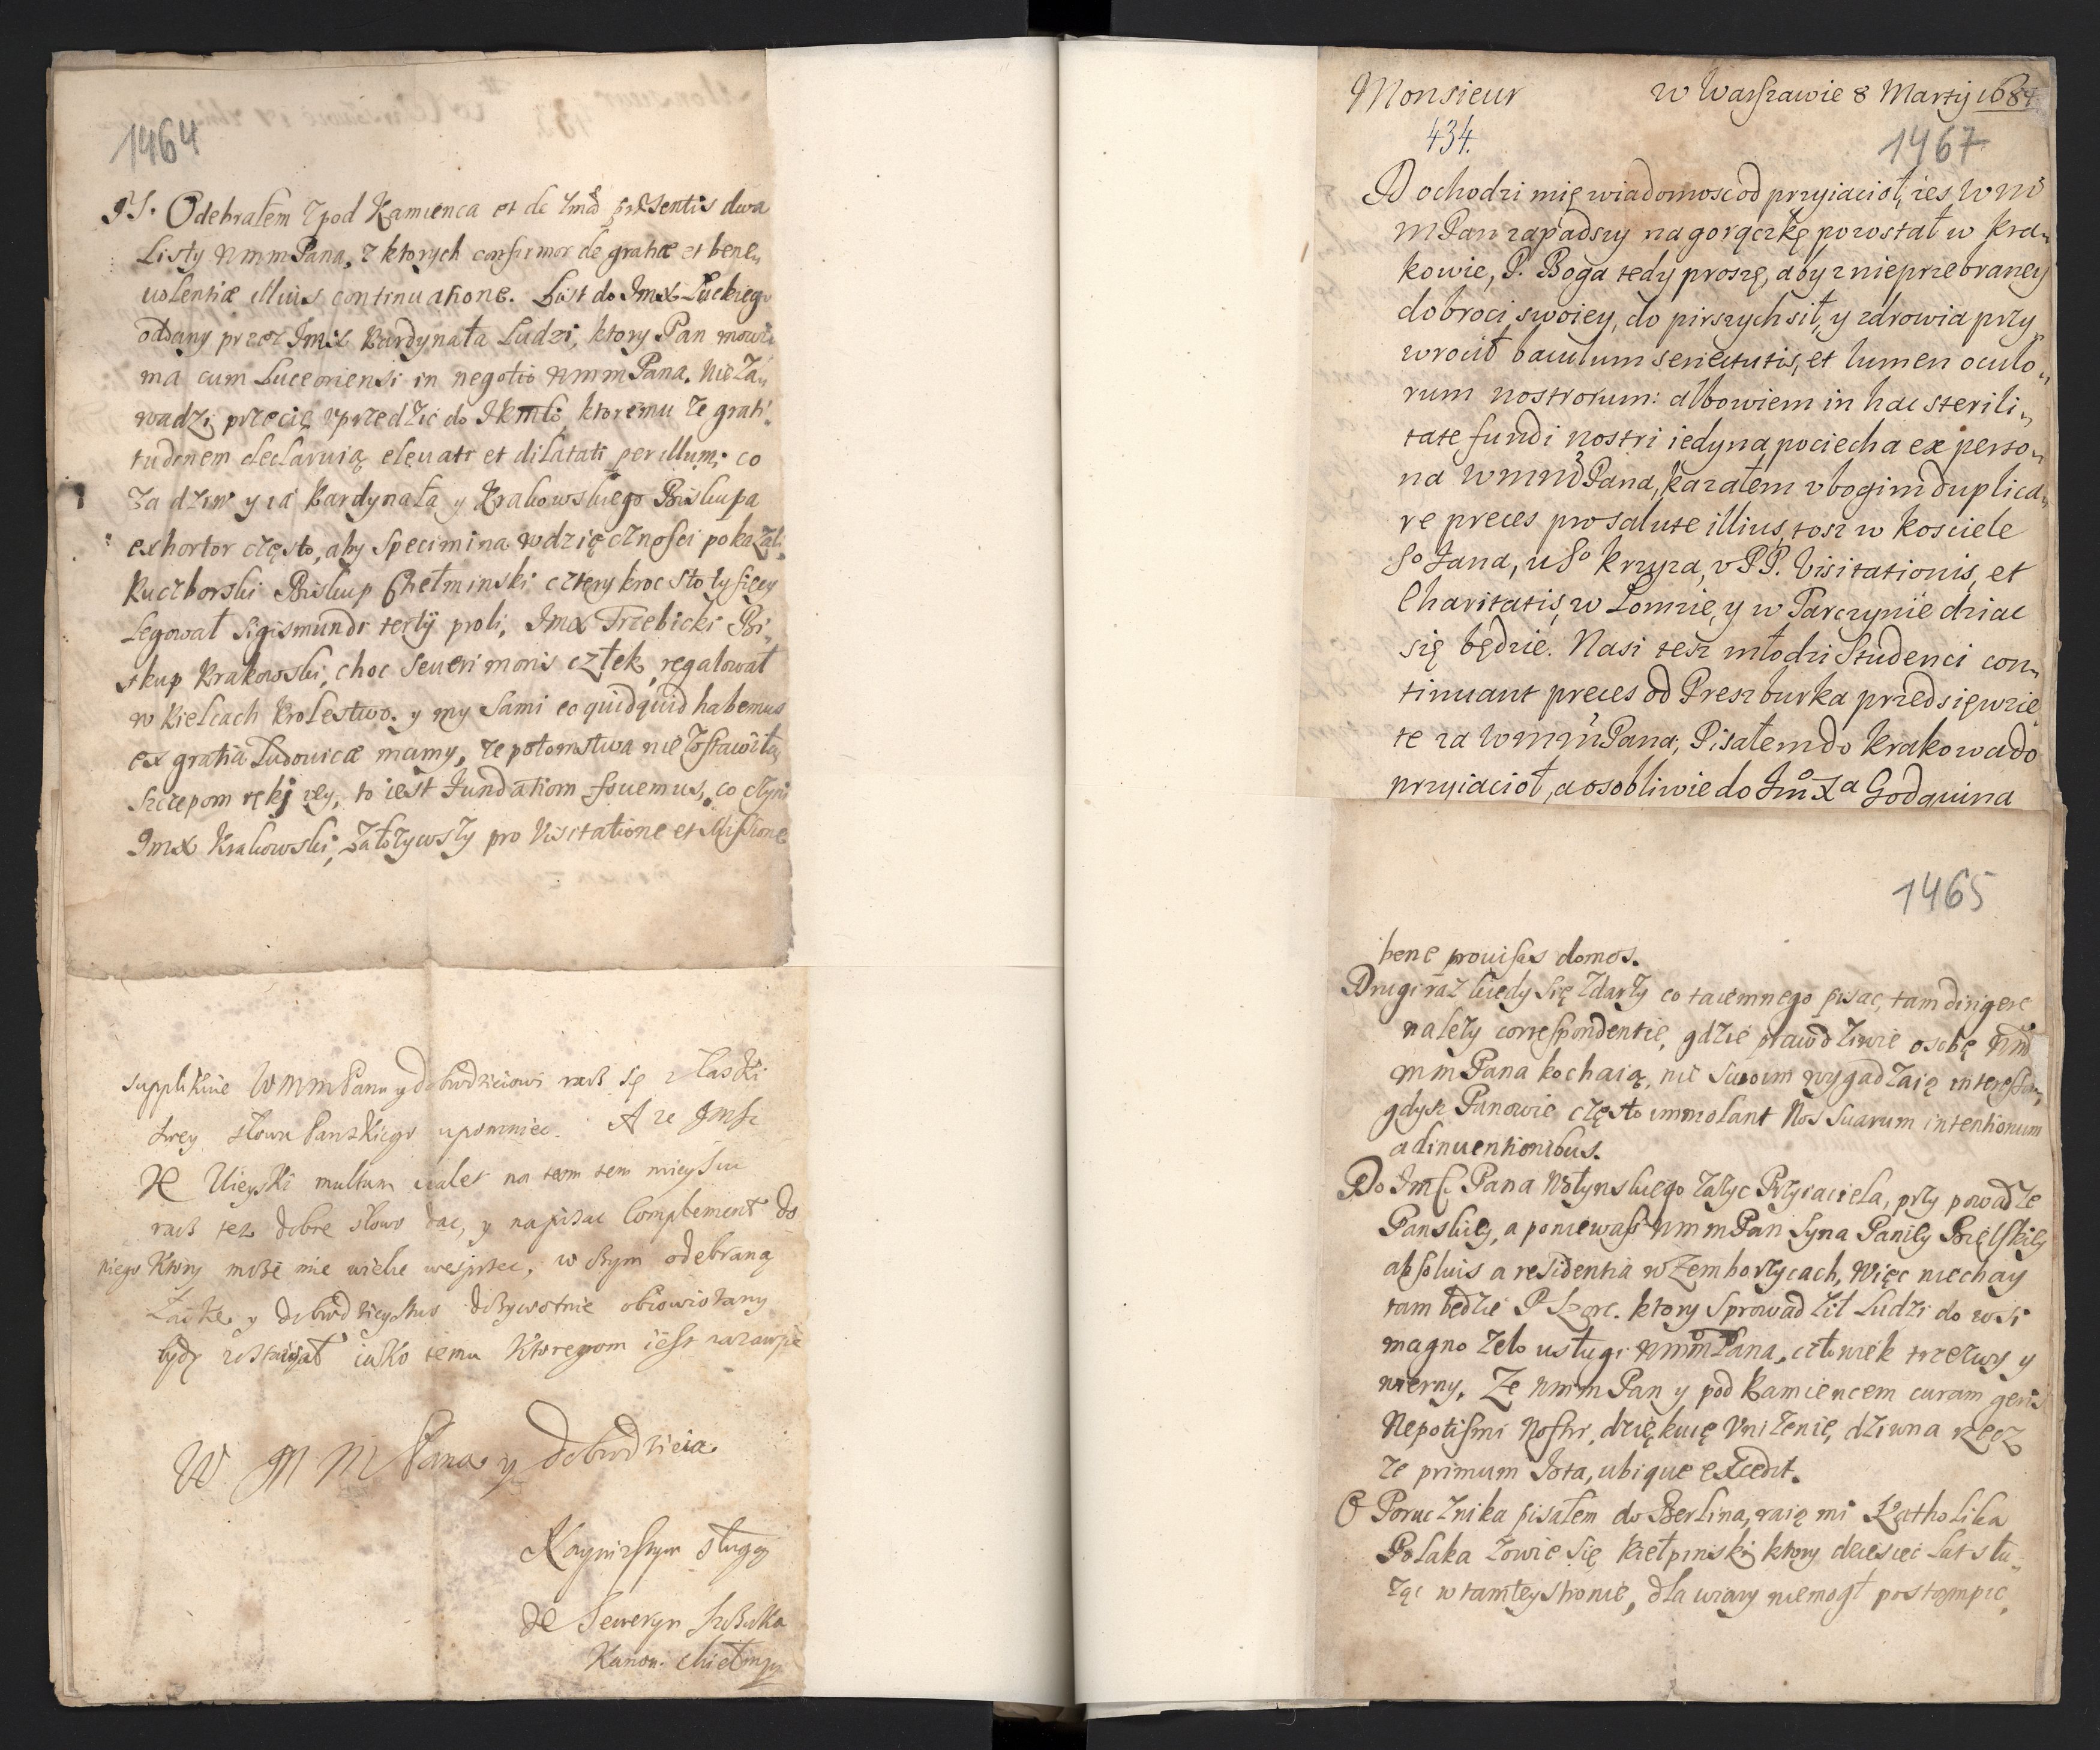 1464
PS. Odebrałem z pod Kamienca et de 4ma praesentis dwa
Listy WmmPana, z ktorych confirmor de gratiæ et bene„
uolentiæ illius continuatione. List do Jmx Łuckiego
oddany przez Jmx Kardynała Ludzi, ktory Pan mowic
ma cum Luceoriensi in negotio WmmPana. Nie za„
wadzi przecię uprzedzic do Jkmsci, ktoremu ze grati„
tudinem declaruią eleuati et dilatati per illum; co
za dziw y ia Kardynała y Krakowskiego Biskupa
exhortor często, aby specimina wdzięcznosci pokazali.
Kuczborski Biskup Chełminski cztery kroc sto tysięcy
Legował Sigismundi tertij proli, Jmx Trzebicki Bi„
skup Krakowski, choc seueri moris cztek, regalował
w Kielcach Krolestwo. y my sami eo quidquid habemus
ex gratia Ludouicæ mamy, ze potomstwa nie zostawiła,
szczepom ręki iey, to iest Fundatiom fouemus, co czyni
Jmx Krakowski, założywszy pro Visitatione et Missione
supplikuie WmmPanu y dobrodzieiowi racz się z łaski
swey słowa Panskiego upomniec. A ze Jmsc
X Uieyski multum ualet na tem tem mieyscu
racz tez dobre słowo dac, y napisac Complement do
niego ktory może mie wielce wesprzec, w czym odebraną
Łaskę y dobrodzieystwo dożywotnie obowiązany
będę zostawał iako temu ktoregom iest zazawsze
W M M Pana y dobrodzieia
Nayniższym sługą
X Seweryn Szczuka
Kanon. Chełmiń
Monsieur w Warszawie 8 Martij 1684
434.
1467
Dochodzi mię wiadomosc od przyiacioł, zes WM
MPan zapadszy na gorączkę pozostał w Kra„
kowie, P. Boga tedy proszę, aby z nieprzebraney
dobroci swoiey, do pirszych sił, y zdrowia przy„
wrocił baculum senectutis, et lumen oculo„
rum nostrorum: albowiem in hac sterili„
tate fundi nostri iedyna pociecha ex perso„
na WMMPana, kazałem ubogim duplica„
re preces pro salute illius, tosz w kosciele
So Jana, u So Krzyza, u PP. Visitationis, et
Charitatis, w Łomzie, y w Parczynie dziac
się będzie. Nasi tesz młodzi Studenci con„
tinuant preces od Preszburka przedsięwzię„
te za WMMPana; Pisałem do Krakowa do
przyiacioł, a osobliwie do Jmo Xa Godquina
1465
bene prouisas domos.
Drugi raz kiedy się zdarzy co taiemnego pisac, tam dirigere
nalezy correspondentie, gdzie prawdziwie osobę Wm
mmPana kochaią, nie swoim wygadzaią interessom,
gdysz Panowie często immolant Nos suarum intentionum
adinuentionibus.
Do Jmsc Pana Wołynskiego zazyc Przyiaciela, przy powadze
Panskiey, a poniewasz WmmPan syna Paniey Bielskiey
absoluis a residentia w Zemborzycach, Więc niechay
tam będzie P. Szorc. ktory sprowadził Ludzi do wsi
magno zelo usługi WmmPana, człowiek trzezwy y
wierny. Ze WmmPan y pod Kamiencem curam geris
Nepotismi Nostri, dziękuię Unizenie, dziwna rzecz
ze primum Jota, ubique excedit.
O Porucznika pisałem do Berlina, raią mi Katholika
Polaka zowie się Kiełpinski ktory dziesięc Lat słu„
żąc w tamtey stronie, dla wiary niemogł postąmpic,